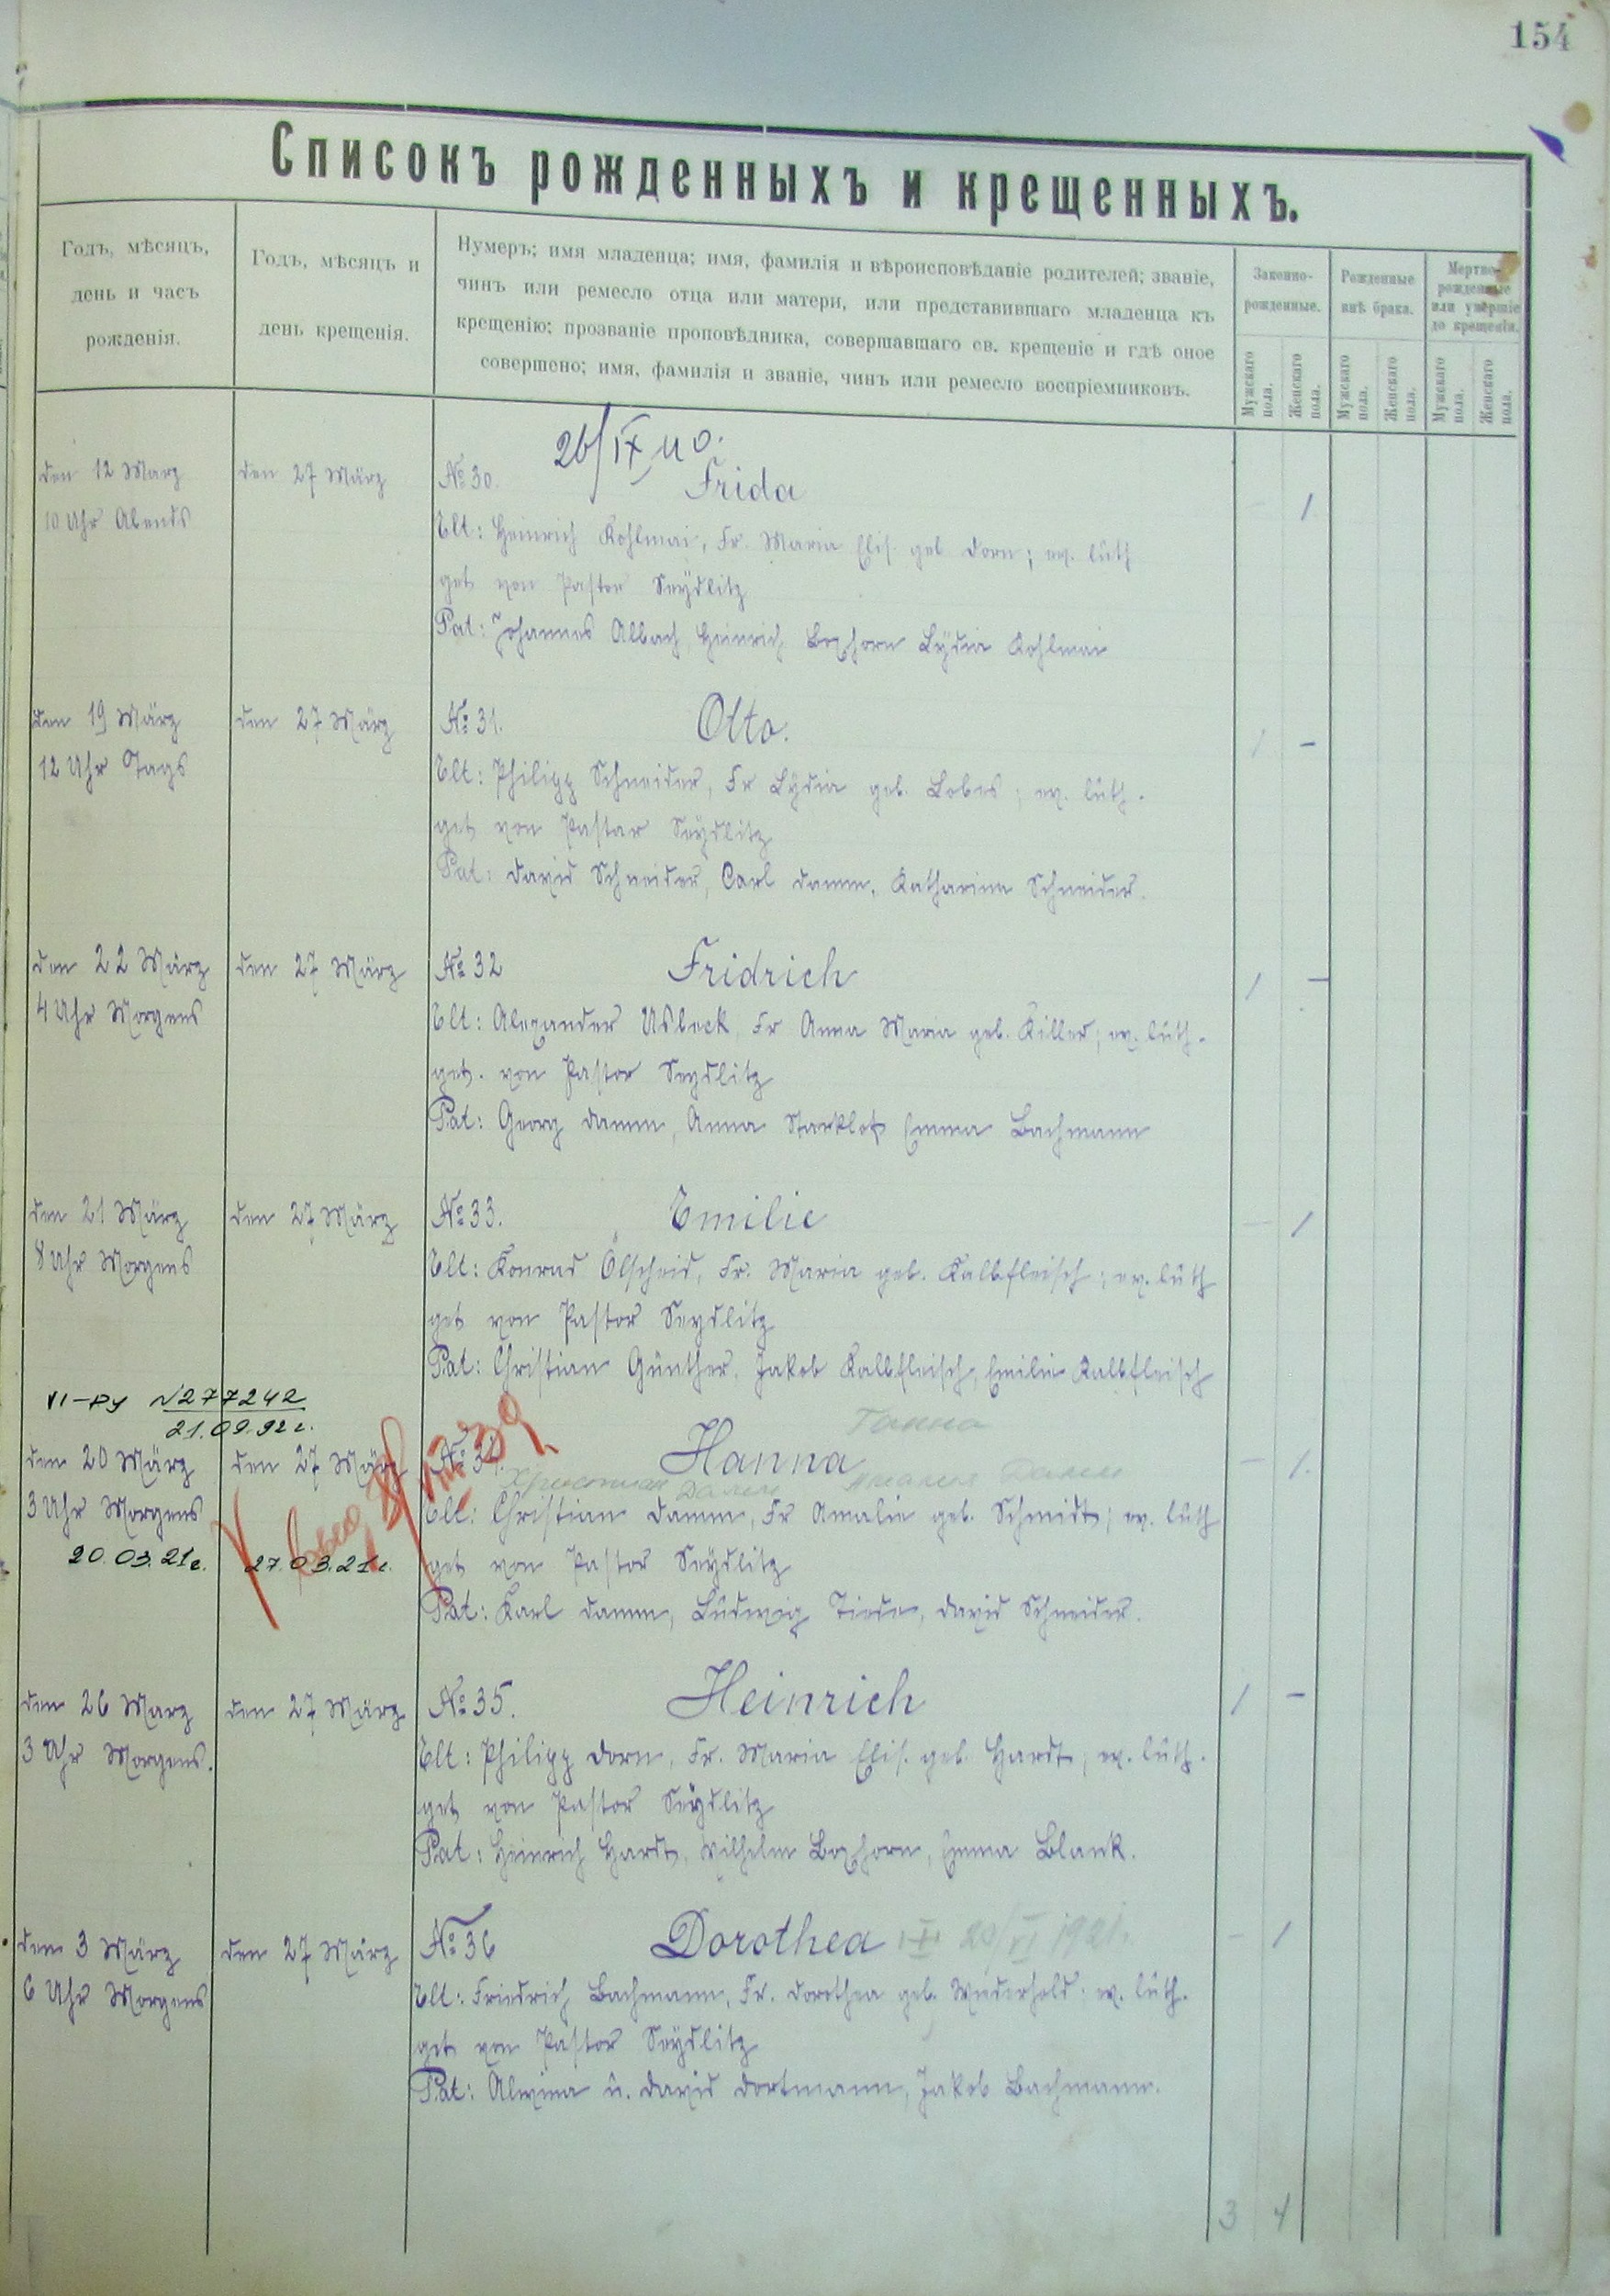 154
Списокъ рожденныхъ и крещенныхъ.
Годъ, мѣсяцъ,
день и часъ
рожденія.
Годъ, мѣсяцъ и
день крещенія.
Нумеръ; имя младенца; имя, фамилія и вѣроисповѣданіе родителей; званіе,
чинъ или ремесло отца или матери, или представившаго младенца къ
крещенію; прозваніе проповѣдника, совершавшаго св. крещеніе и гдѣ оное
совершено; имя, фамилія и званіе, чинъ или ремесло воспріемниковъ.
Законно-
рожденные.
Рожденные
внѣ брака.
Мертво-
рожденные
или умершіе
до крещенія.
Мужскаго пола.
Женскаго пола.
Мужскаго пола.
Женскаго пола.
Мужскаго пола.
Женскаго пола.
26/IX 40.
den 12 März
10 Uhr Abends
den 27 März
№ 30. Frida
- 1
Elt: Heinrich Kohlmai, Fr. Maria Elis. geb Dorn; ev. luth
get von Pastor Seydlitz
Pat: Johannes Albach, Heinrich Boxhorn Lydia Kohlmai
den 19 März
12 Uhr Tags
den 27 März
№ 31. Otto.
1 -
Elt: Philipp Schneider, Fr Lydia geb. Lobes; ev. luth.
get von Pastor Seydlitz
Pat: David Schneider, Carl Damm, Katharina Schneider.
den 22 März
4 Uhr Morgens
den 27 März
№ 32 Fridrich
1 -
Elt: Alexander Usbeck, Fr Anna Maria geb. Killer; ev. luth.
get. von Pastor Seydlitz
Pat: Georg Damm, Anna Starklof, Emma Bachmann
den 21 März
8 Uhr Morgens
den 27 März
№ 33. Emilie
- 1
Elt: Konrad Ölscheid, Fr. Maria geb. Kalbfleisch; ev. luth
get von Pastor Seydlitz
Pat: Christian Günther, Jakob Kalbfleisch, Emilie Kalbfleisch
VI-РУ №277242
21.09.92г.
Ганна
den 20 März
3 Uhr Morgens
den 27 März
№ 34. Hanna
- 1.
Христиан Дамм Амалия Дамм
Elt: Christian Damm, Fr Amalie geb. Schmidt; ev. luth
20.03.21г. 27.03.21г.
get von Pastor Seydlitz
Pat: Karl Damm, Ludwig Tiede, David Schneider.
den 26 März
3 Uhr Morgens.
den 27 März
№ 35. Heinrich
1 -
Elt: Philipp Dorn, Fr. Maria Elis. geb. Hardt; ev. luth.
get von Pastor Seydlitz
Pat: Heinrich Hardt, Wilhelm Boxhorn, Emma Blank.
den 3 März
6 Uhr Morgens
den 27 März
№ 36 Dorothea 20/VI 1921.
- 1
Elt: Friedrich Bachmann, Fr. Dorothea geb. Wiederhold; ev. luth.
get von Pastor Seydlitz
Pat: Alwina u. David Dortmann, Jakob Bachmann.
3 4